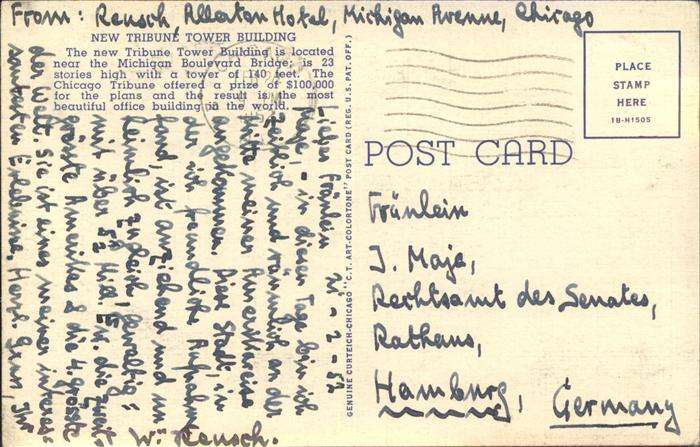 From: Rensch, Allerton Hotel, Michigan Avenue, Chicago
NEW TRIBUNE TOWER BUILDING
The new Tribune Tower Building is located
near the Michigan Boulevard Bridge; is 23
stories high with a tower of 140 feet. The
Chicago Tribune offered a prize of $100,000
for the plans and the result is the most
beautiful office building in the world.
24-2-52
Liebes Fräulein
Maje, - in diesen Tagen bin ich
zeitlich und räumlich an der
Mitte meiner Amerikareise
angekommen. Diese Stadt, in
der ich freundliche Aufnahme
fand, ist anziehend und un-
heimlich zugleich, gewaltig:
mit über 5½ Mill. E. ist die zweit-
grösste Amerikas & die 4. grösste
der Welt. Sie ist eines meiner interes-
santesten Erlebnisse. Herzl. Gruss, Ihr
W. Rensch.
GENUINE CURTEICH-CHICAGO "C.T. ART-COLORTONE" POST CARD (REG. U.S. PAT. OFF.)
PLACE
STAMP
HERE
1B-H1505
POST CARD
Fräulein
J. Maje,
Rechtsamt des Senates,
Rathaus,
Hamburg,
Germany